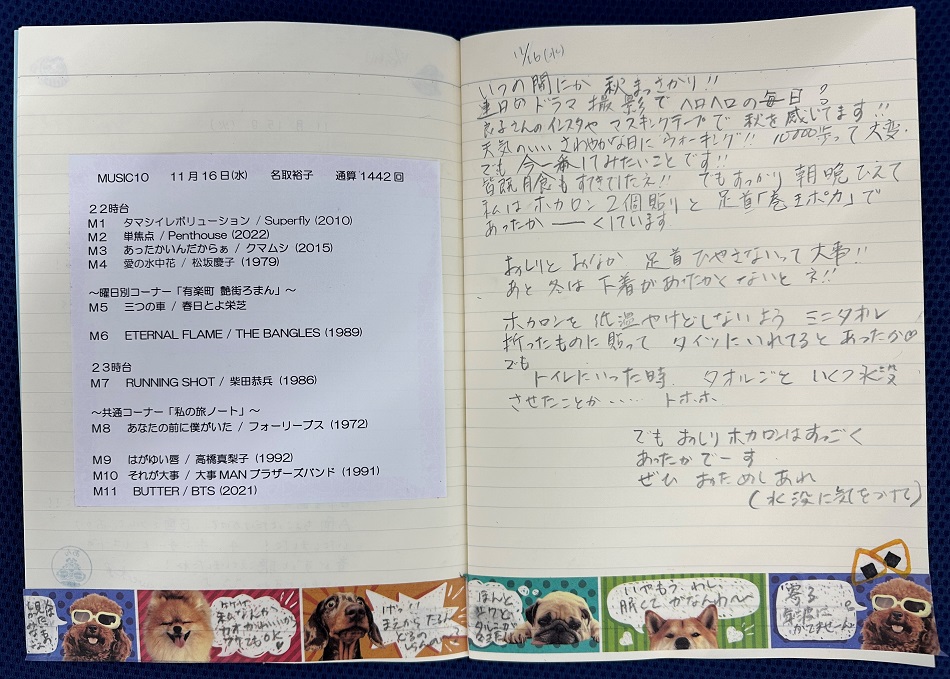 MUSIC10　11月16日(水)　名取裕子　通算 1442回
22時台
M1　タマシイレボリューション / Superfly (2010)
M2　単焦点 / Penthouse (2022)
M3　あったかいんだからぁ / クマムシ (2015)
M4　愛の水中花 / 松坂慶子 (1979)
～曜日別コーナー「有楽町 艶街ろまん」～
M5　三つの車 / 春日とよ栄芝
M6　ETERNAL FLAME / THE BANGLES (1989)
23時台
M7　RUNNING SHOT / 柴田恭兵 (1986)
～共通コーナー「私の旅ノート」～
M8　あなたの前に僕がいた / フォーリーブス (1972)
M9　はがゆい唇 / 高橋真梨子 (1992)
M10　それが大事 / 大事MANブラザーズバンド (1991)
M11　BUTTER / BTS (2021)
11/16(水)
いつの間にか 秋まっさかり!!
連日のドラマ撮影でヘロヘロの毎日
良子さんのインスタや マスキングテープで 秋を感じてます!!
天気のいい さわやかな日に ウォーキング!! 10000歩って大変.
でも 今一番してみたいことです!!
皆既月食もすてきでしたネ!! でもすっかり 朝晩ひえて
私は ホカロン 2個貼りと 足首「巻王ポカ」で
あったかーくしています
おしりと おなか 足首 ひやさないって 大事!!
あと 冬は 下着があったかくないとネ!!
ホカロンを 低温やけどしないよう ミニタオル
折ったものに貼って タイツにいれてると あったか♡
でも
トイレにいった時. タオルごと いくつ水没
させたことか‥‥ トホホ
でも おしりホカロンはすっごく
あったかでーす
ぜひ おためしあれ
(水没に気をつけて)
げっ!!
ほんと
いやもう、わし、